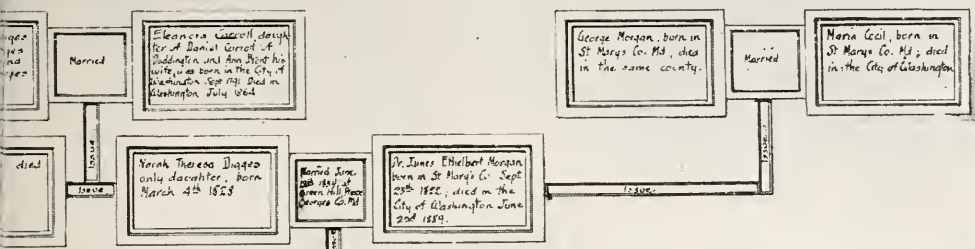 Married
Eleanora Carroll, daugh
ter of Daniel Carroll of
Duddington and Ann Brent his
wife, was born in the City of
Washington Sept 1791 Died in
Washington July 1864
George Morgan, born in
St Marys Co. Md, died
in the same county.
Married
Maria Cecil, born in
St Marys Co. Md; died
in the City of Washington
Issue
Issue
died
Issue
Norah Theresa Digges
only daughter, born
March 4th 1828
Married June
at
Green Hill Prince
Georges Co. Md
Dr. James Ethelbert Morgan
born in St Mary's Co Sept
25th 1822; died in the
City of Washington June
2nd 1889.
Issue
Issue